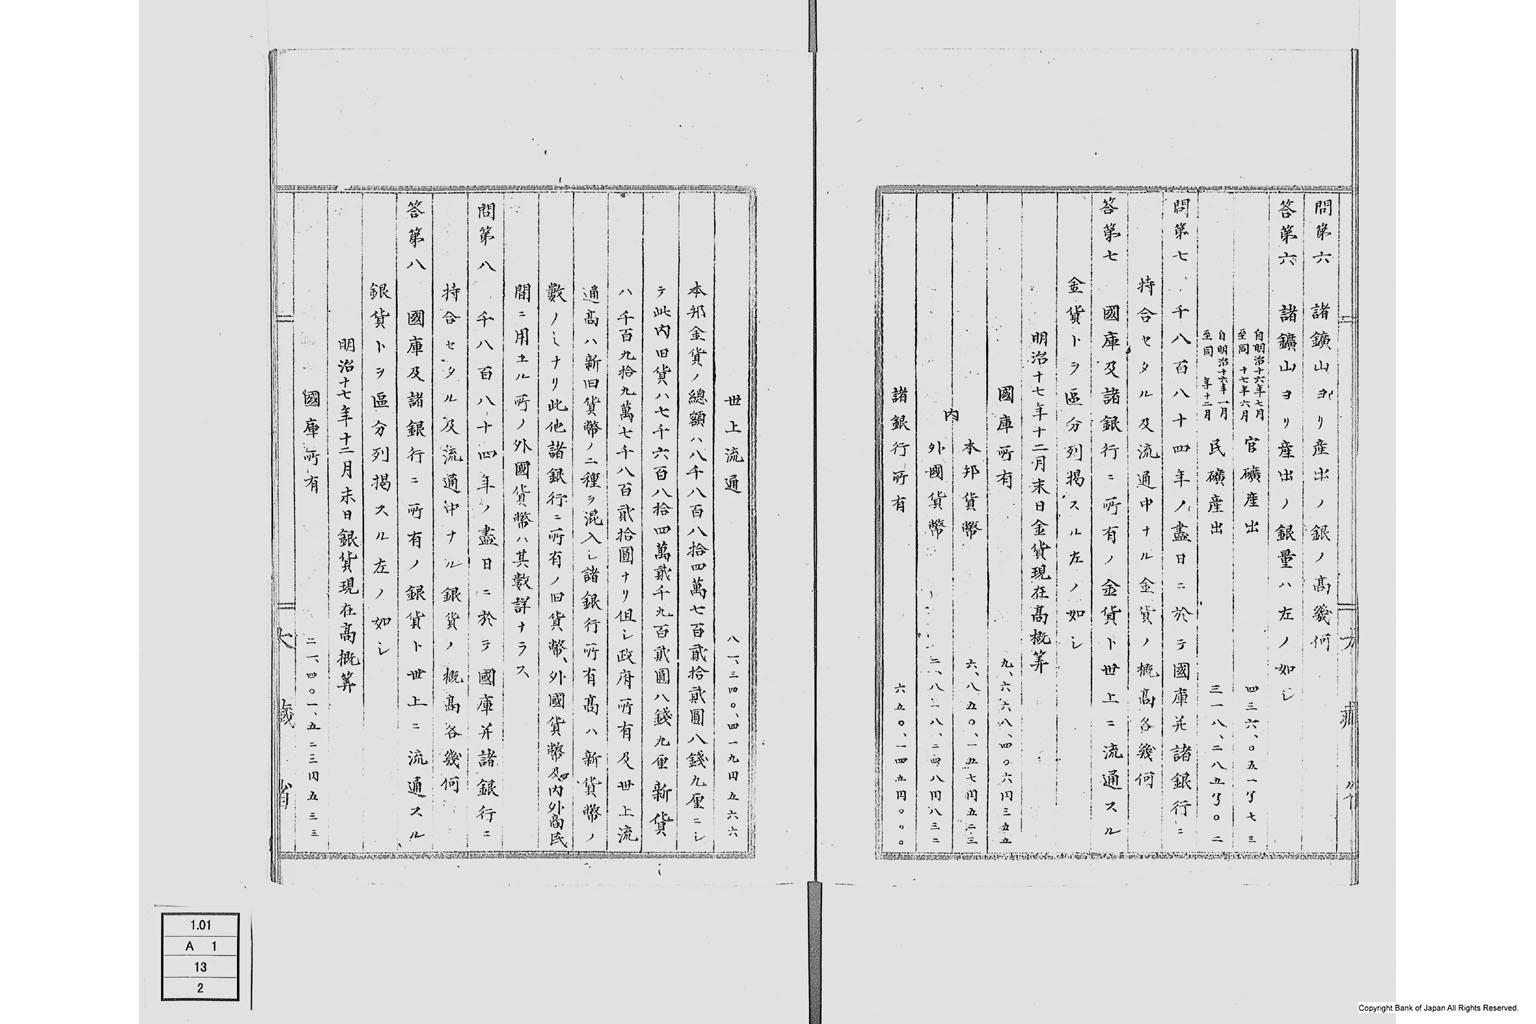 問第六 諸鑛山ヨリ産出ノ銀ノ高幾何
答第六 諸鑛山ヨリ産出ノ銀量ハ左ノ如シ
自明治十六年七月
至同 十七年六月 官礦産出 四三六、〇五一〆七三
自明治十六年一月
至同 年十二月 民礦産出 三一八、二八五〆〇二
問第七 千八百八十四年ノ盡日ニ於テ國庫并諸銀行ニ
持合セタル及流通中ナル金貨ノ概高各幾何
答第七 國庫及諸銀行ニ所有ノ金貨ト世上ニ流通スル
金貨トヲ區分列揭スル左ノ如シ
明治十七年十二月末日金貨現在高概筭
國庫所有 九、六六八、四〇六円三五五
内
本邦貨幣 六、八五〇、一五七円五二三
外國貨幣 二、八一八、二四八円八三二
諸銀行所有 六五〇、一四五円〇〇〇
世上流通 八一、三四〇、四一九円五六六
本邦金貨ノ總額ハ八千八百八拾四萬七百貳拾貳圓八錢九厘ニシ
テ此内旧貨ハ七千六百八拾四萬貳千九百貳圓八錢九厘新貨
ハ千百九拾九萬七千八百貳拾圓ナリ但シ政府所有及世上流
通高ハ新旧貨幣ノ二種ヲ混入シ諸銀行所有高ハ新貨幣ノ
數ノミナリ此他諸銀行ニ所有ノ旧貨幣、外國貨幣及内外商民
間ニ用ユル所ノ外國貨幣ハ其數詳ナラス
問第八 千八百八十四年ノ盡日ニ於テ國庫并諸銀行ニ
持合セタル及流通中ナル銀貨ノ概高各幾何
答第八 國庫及諸銀行ニ所有ノ銀貨ト世上ニ流通スル
銀貨トヲ區分列揭スル左ノ如シ
明治十七年十二月末日銀貨現在高概筭
國庫所有 二一、四〇一、五二三円五三三
大藏省
1.01
A 1
13
2
Copyright Bank of Japan All Rights Reserved.